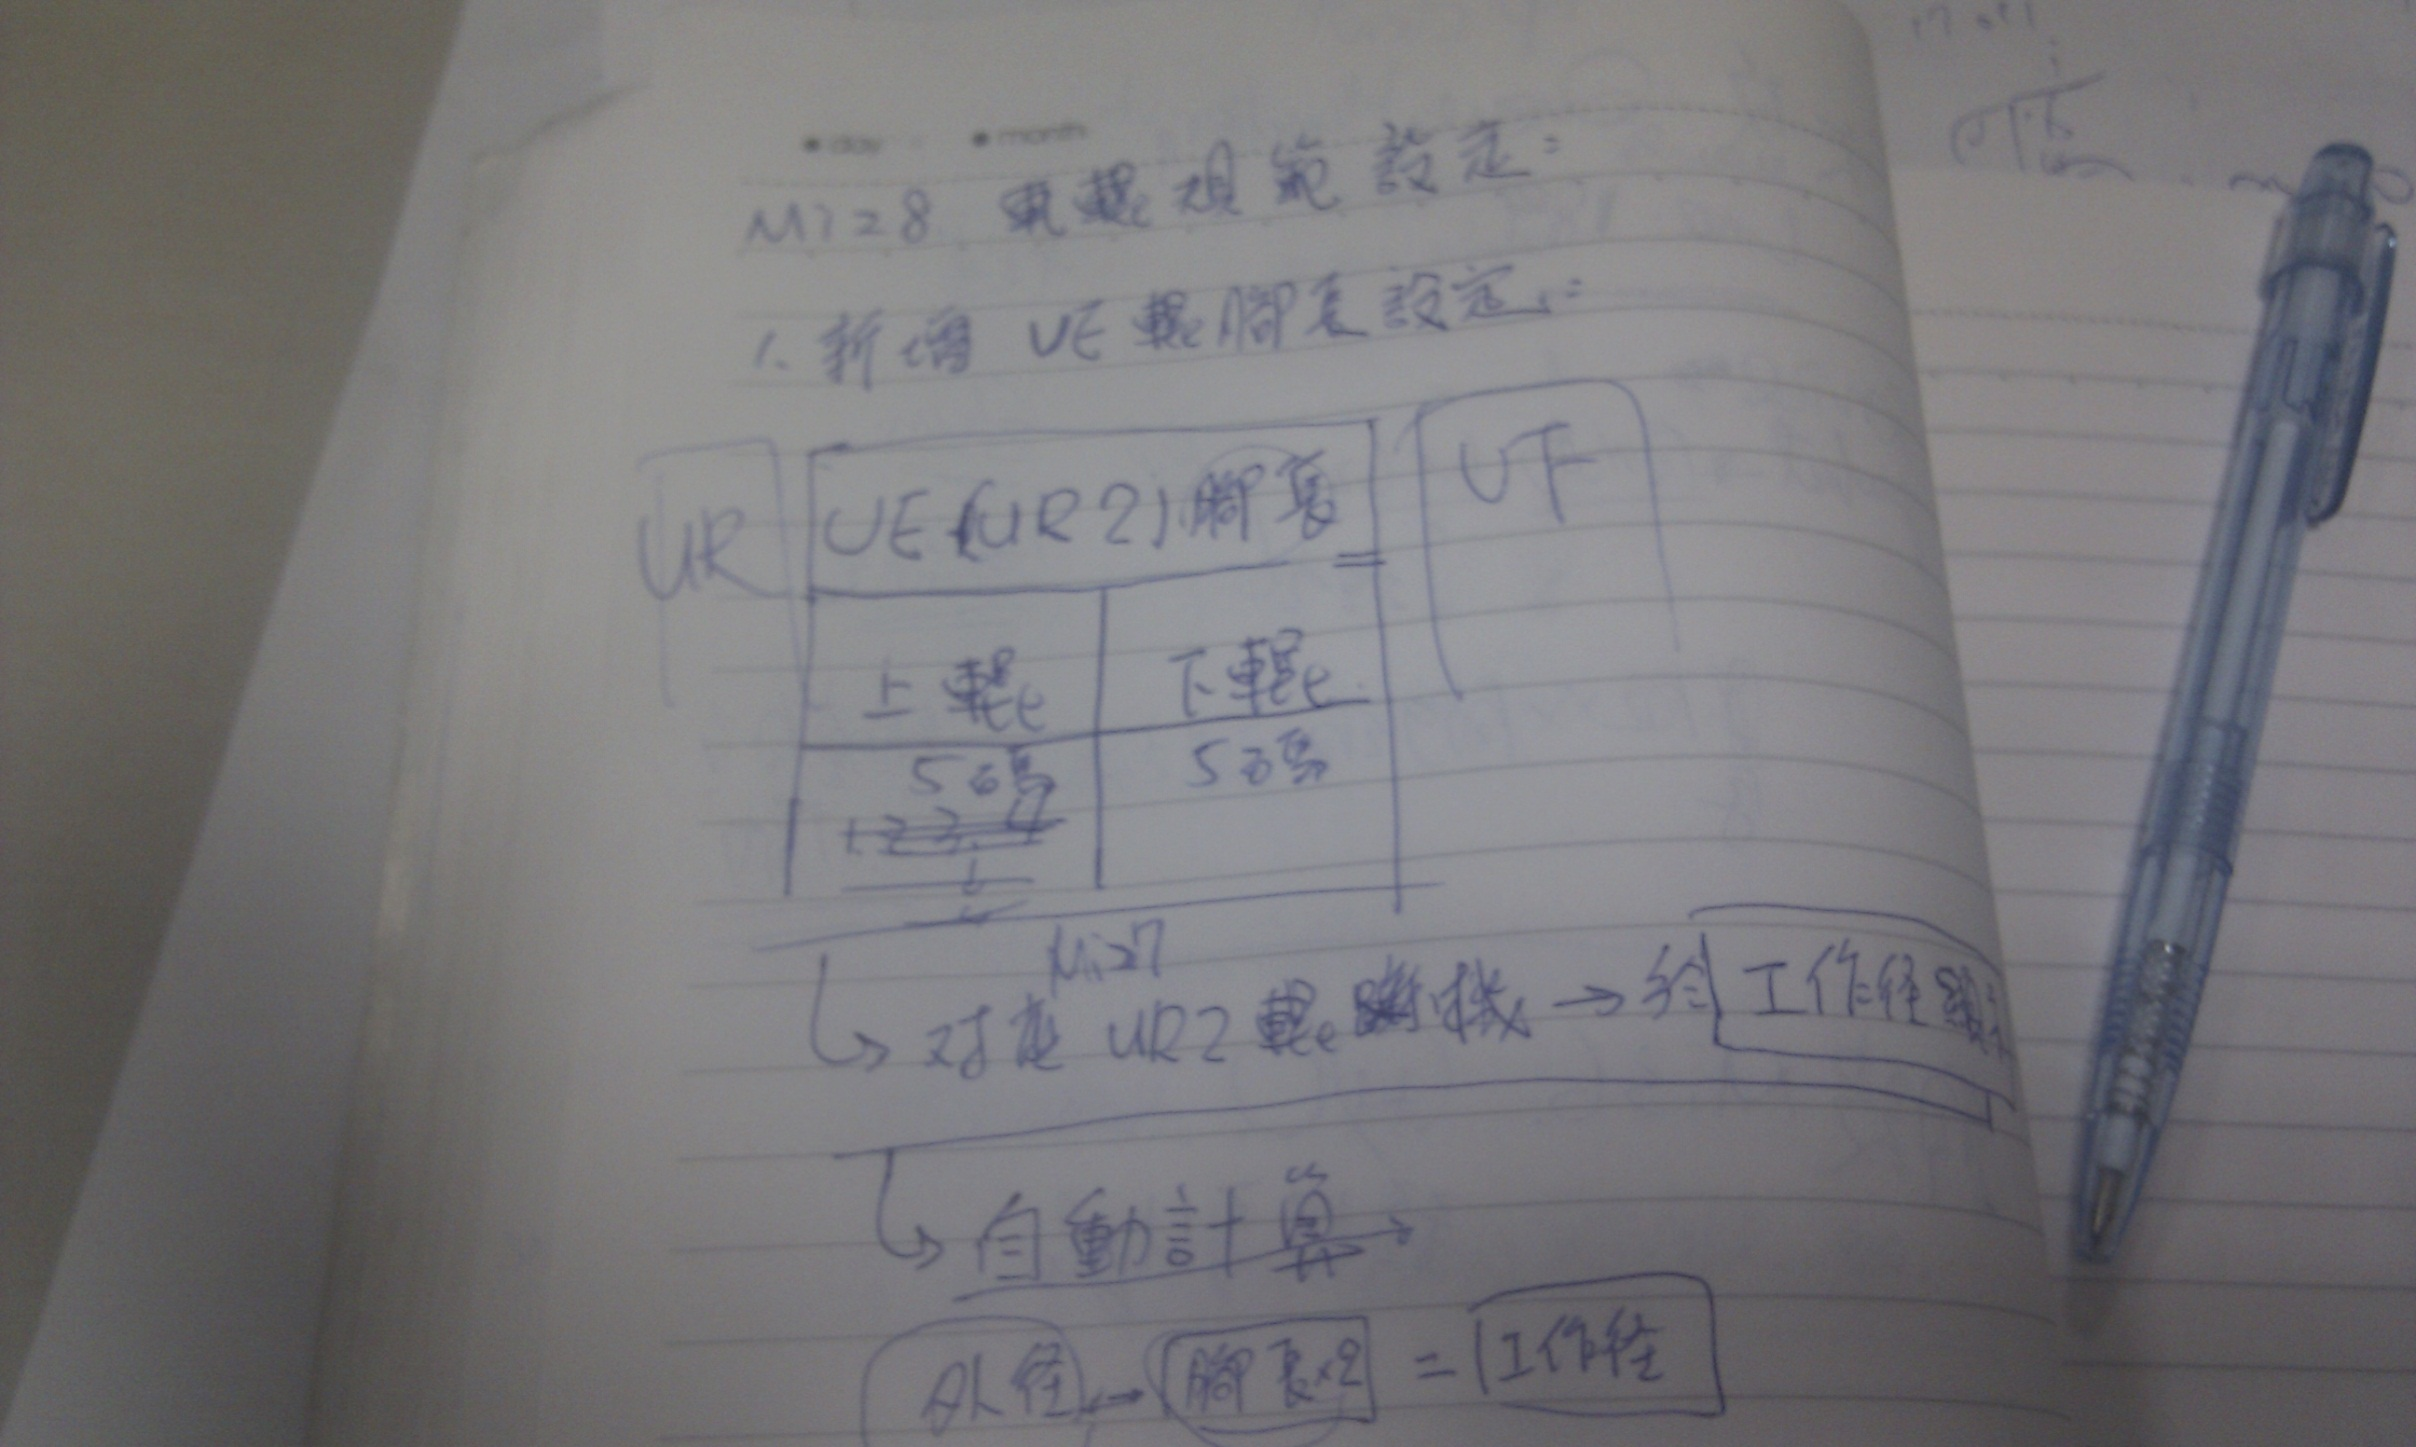 day month
Mi28 軋輥規範設定:
1. 新增 UE輥腳長設定:
UR
UE(UR2)腳長
UF
上輥 下輥
5碼 5碼
Mi27
对應 UR2 輥 機 → 給 工作径
自動計算
外径 - 腳長×2 = 工作径